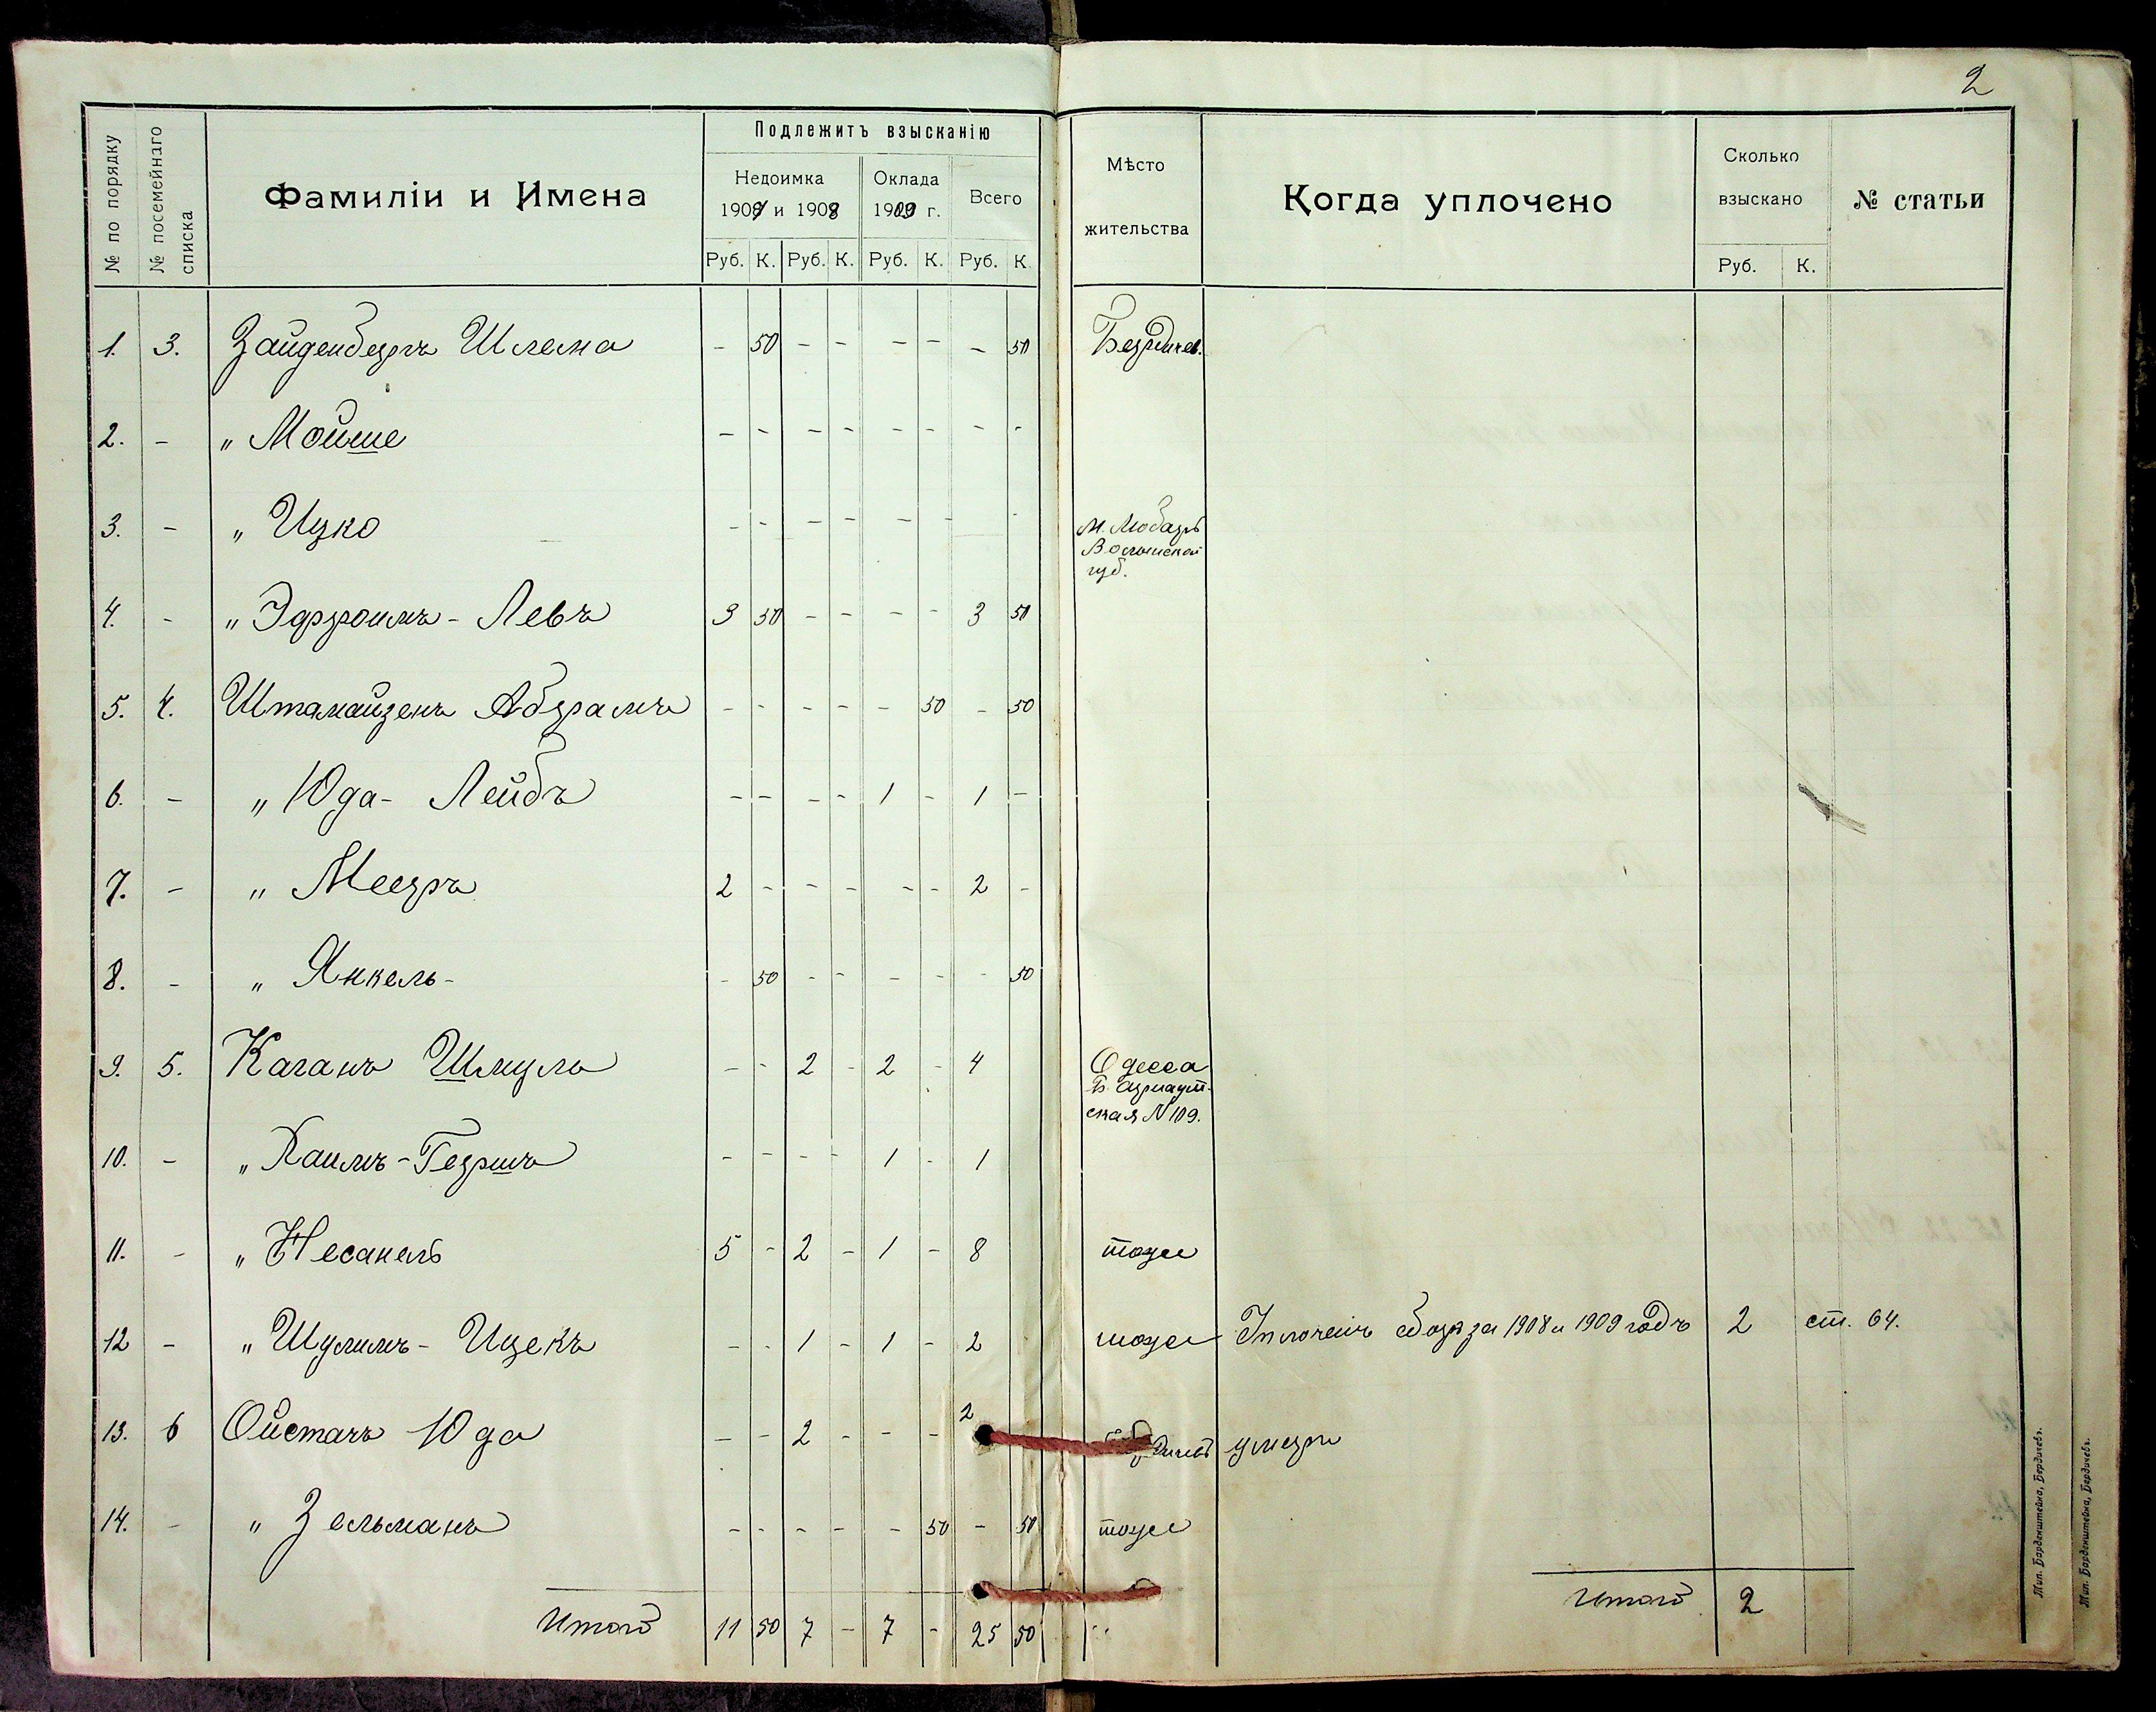 2
№ по порядку
№ посемейнаго списка
Фамиліи и Имена
Подлежитъ взысканію
Недоимка
1907 и 1908
Оклада
1909 г.
Всего
Руб. К. Руб. К. Руб. К. Руб. К.
Мѣсто
жительства
Когда уплочено
Сколько
взыскано
Руб. К.
№ статьи
1. 3. Зайденбергъ Шлема - 50 - - - - - 50 Бердичев.
2. - " Мойше - - - - - - - -
3. - " Ицко - - - - - - - м. Любаръ
Волынской
губ.
4. - " Эфроимъ - Левъ 3 50 - - - - 3 50
5. 4. Штамайзенъ Абрамъ - - - - - 50 - 50
6. - " Юда - Лейбъ - - - - 1 - 1 -
7. - " Мееръ 2 - - - - - 2 -
8. - " Янкель - - 50 - - - - - 50
9. 5. Каганъ Шмуль - - 2 - 2 - 4 Одесса
Б. Арнаут-
ская № 109.
10. - " Хаимъ - Гершъ - - - - 1 - 1
11. - " Несанель 5 - 2 - 1 - 8 тоже
12 - " Шулимъ - Ицекъ - - 1 - 1 - 2 тоже сборъ за 1908 и 1909 годъ 2 ст. 64.
13. 6 Ойстачъ Юда - - 2 - - - 2 умеръ
14. - " Зельманъ - - - - - 50 - 50 тоже
Итого 11 50 7 - 7 - 25 50
Итого 2
Тип. Барденштейна, Бердичевъ.
Тип. Барденштейна, Бердичевъ.